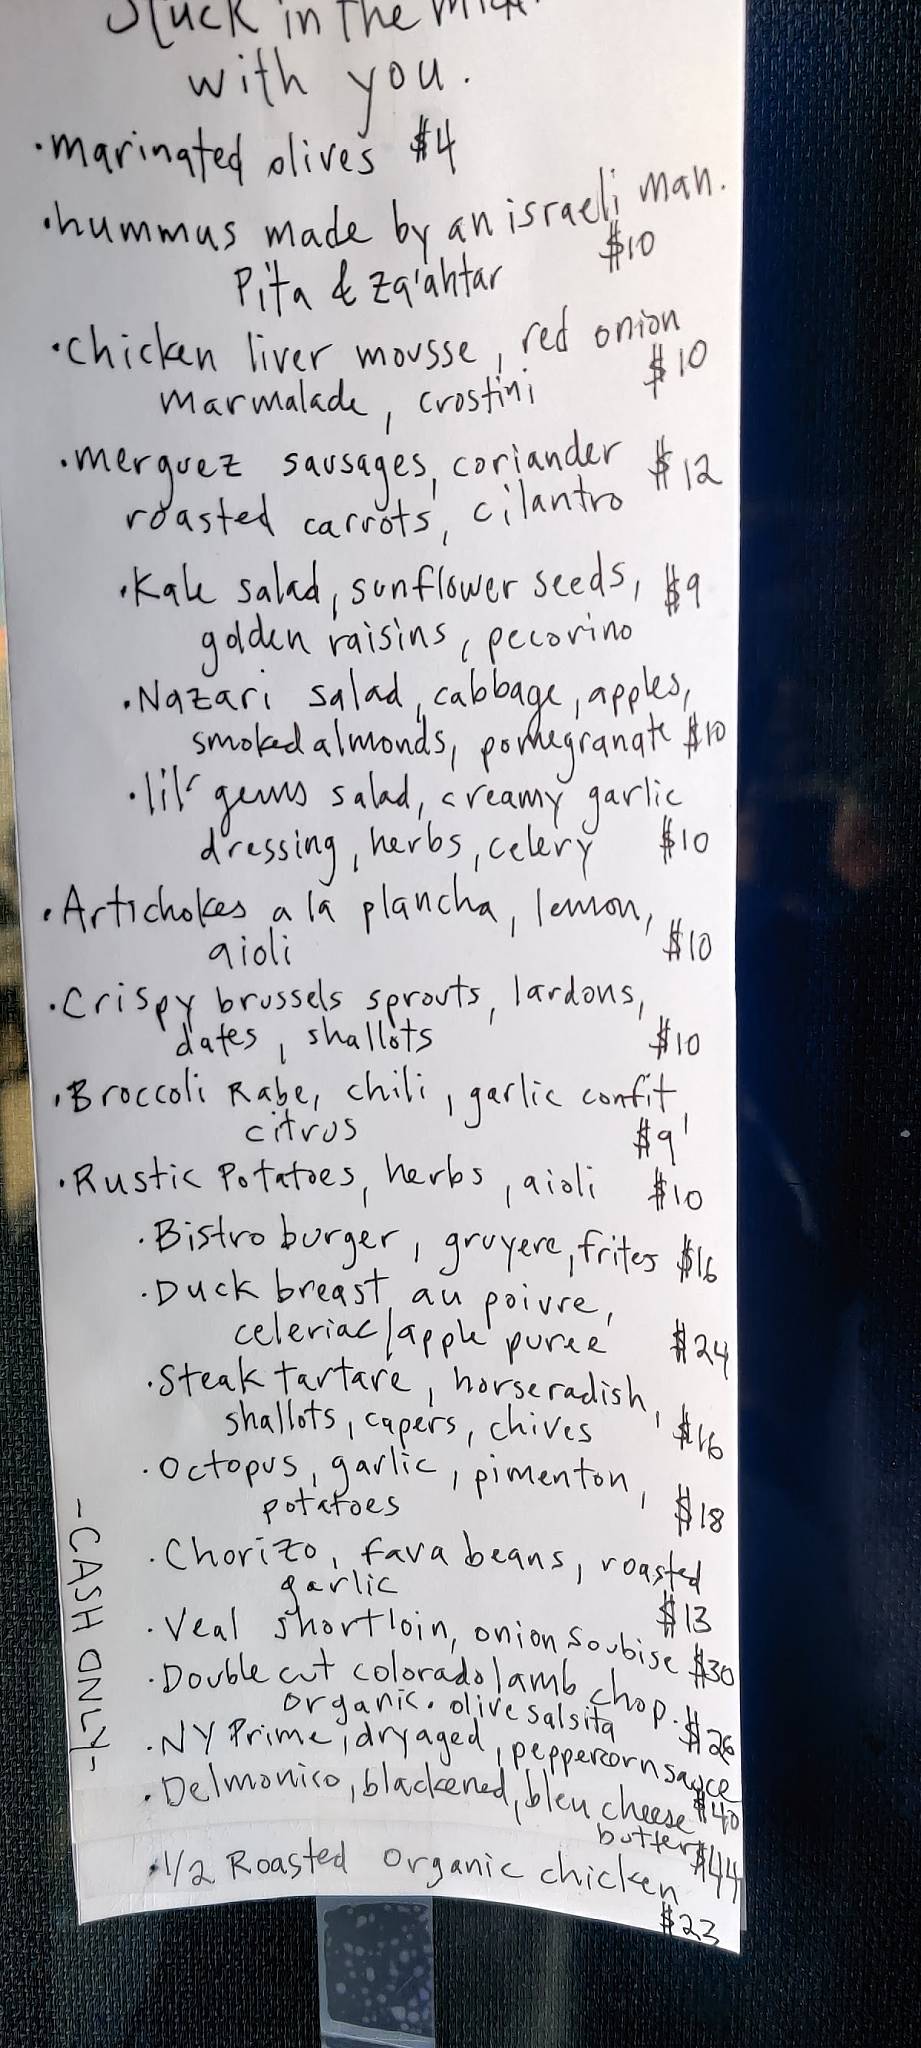 Stuck in the
with you.
·marinated olives $4
·hummus made by an israeli man.
Pita & za'ahtar $10
·Chicken liver mousse, red onion
marmalade, crostini $10
·merguez sausages, coriander $12
roasted carrots, cilantro
·Kale salad, sunflower seeds, $9
golden raisins, pecorino
·Nazari salad, cabbage, apples,
smoked almonds, pomegranate $10
·lil' gems salad, creamy garlic
dressing, herbs, celery $10
·Artichokes a la plancha, lemon,
aioli $10
·Crispy brussels sprouts, lardons,
dates, shallots $10
·Broccoli Rabe, chili, garlic confit
citrus $9
·Rustic Potatoes, herbs, aioli $10
·Bistro burger, gruyere, frites $16
·Duck breast au poivre,
celeriac/apple puree $24
·Steak tartare, horseradish,
shallots, capers, chives $16
·Octopus, garlic, pimenton,
potatoes $18
·Chorizo, fava beans, roasted
garlic $13
·Veal shortloin, onion soubise $30
·Double cut colorado lamb chop.
organic. olive salsita $26
·NY Prime, dryaged, peppercorn sauce
$40
·Delmonico, blackened, bleu cheese
butter $44
·1/2 Roasted organic chicken
$23
-CASH ONLY-